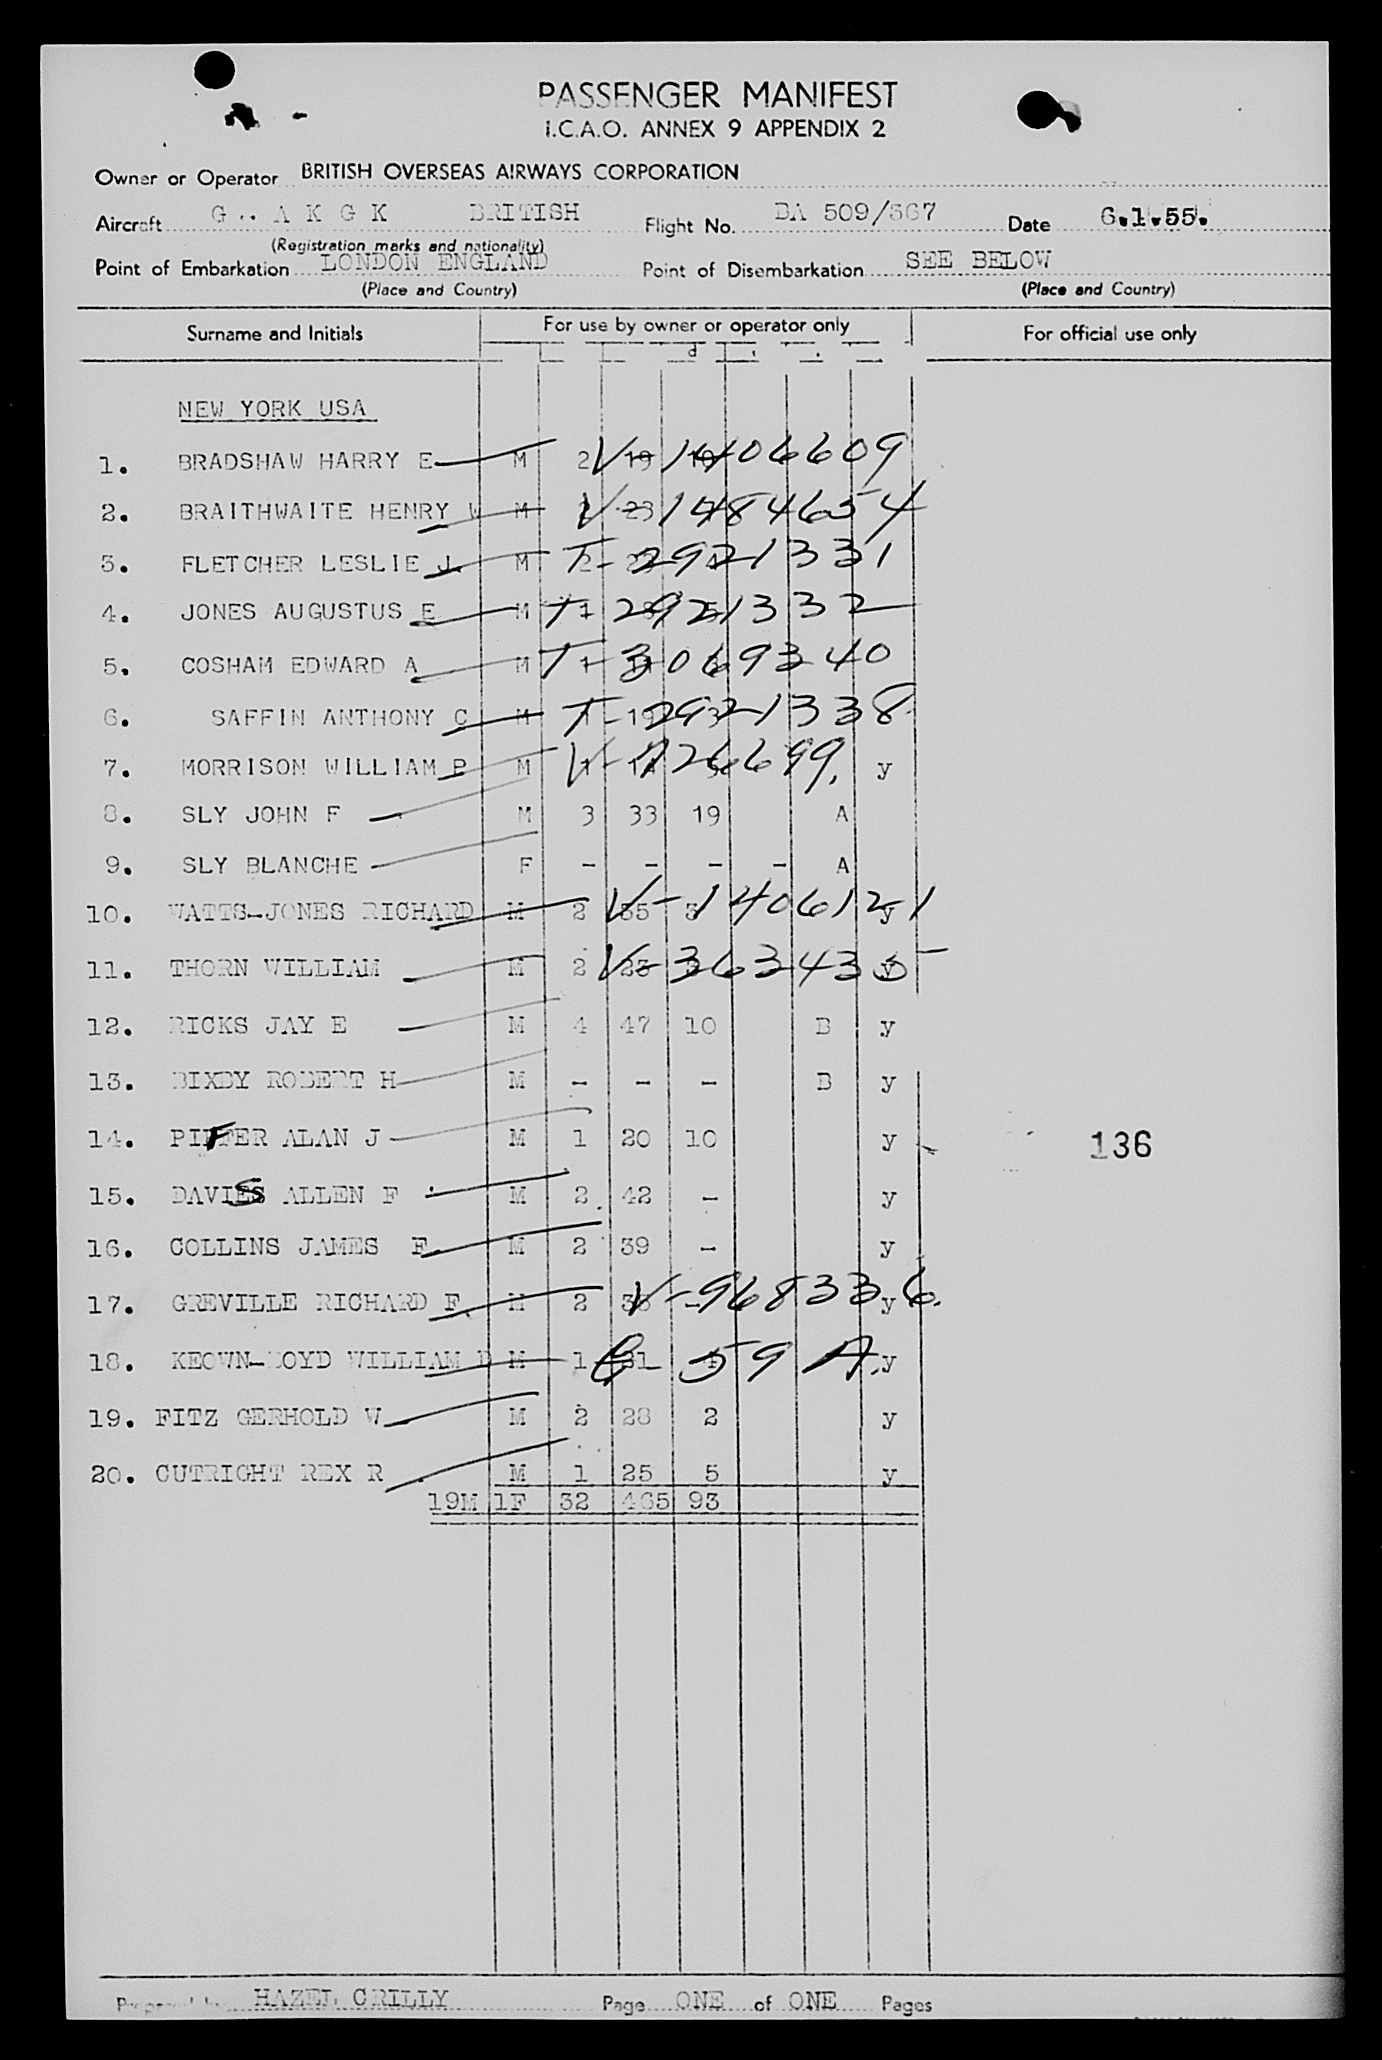 PASSENGER MANIFEST
I.C.A.O. ANNEX 9 APPENDIX 2
Owner or Operator BRITISH OVERSEAS AIRWAYS CORPORATION
Aircraft G - A K G K BRITISH Flight No. BA 509/567 Date 6.1.55.
(Registration marks and nationality)
Point of Embarkation LONDON ENGLAND Point of Disembarkation SEE BELOW
(Place and Country) (Place and Country)
Surname and Initials For use by owner or operator only For official use only
NEW YORK USA
1. BRADSHAW HARRY E M 2 19 V-1406609
2. BRAITHWAITE HENRY W M 23 V-1484654
3. FLETCHER LESLIE J. M 2 T-2921331
4. JONES AUGUSTUS E M 1 T-2921332
5. COSHAM EDWARD A M 1 T-3069340
6. SAFFIN ANTHONY C M 1 19 T-2921338
7. MORRISON WILLIAM P M 1 V-126699. y
8. SLY JOHN F M 3 33 19 A
9. SLY BLANCHE F - - - - A
10. WATTS-JONES RICHARD M 2 35 V-1406121 y
11. THORN WILLIAM M 2 23 V-3634335 y
12. RICKS JAY E M 4 47 10 B y
13. BIXBY ROBERT H M - - - B y
14. PIFFER ALAN J M 1 20 10 y
136
15. DAVIES ALLEN F M 2 42 - y
16. COLLINS JAMES F M 2 39 - y
17. GREVILLE RICHARD F M 2 V-968336. y
18. KEOWN-BOYD WILLIAM M 1 31 59 A. y
19. FITZ GERHOLD W M 2 28 2 y
20. CUTRIGHT REX R M 1 25 5 y
19M 1F 32 465 93
Prepared by HAZEL CRILLY Page ONE of ONE Pages